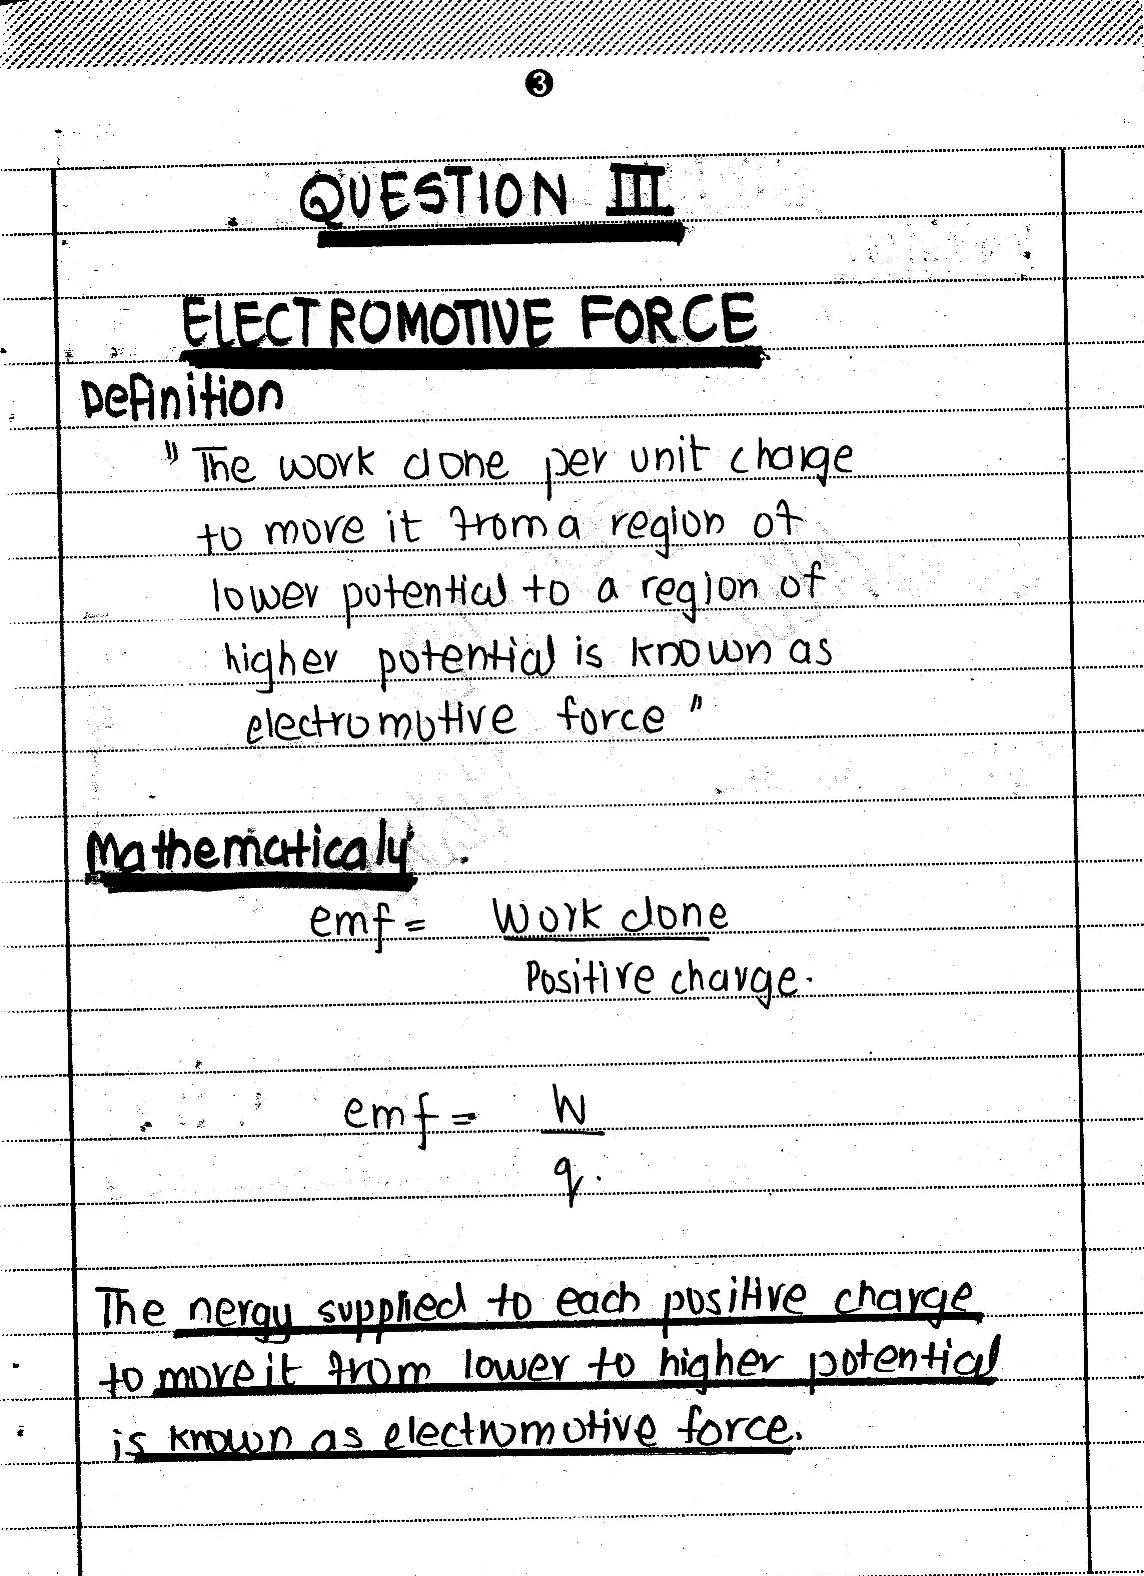 3
QUESTION III
ELECTROMOTIVE FORCE
Definition
"The work done per unit charge
to move it from a region of
lower potential to a region of
higher potential is known as
electromotive force"
Mathematicaly
emf = Work done
Positive charge.
emf = W
q.
The nergy supplied to each positive charge
to move it from lower to higher potential
is known as electromotive force.